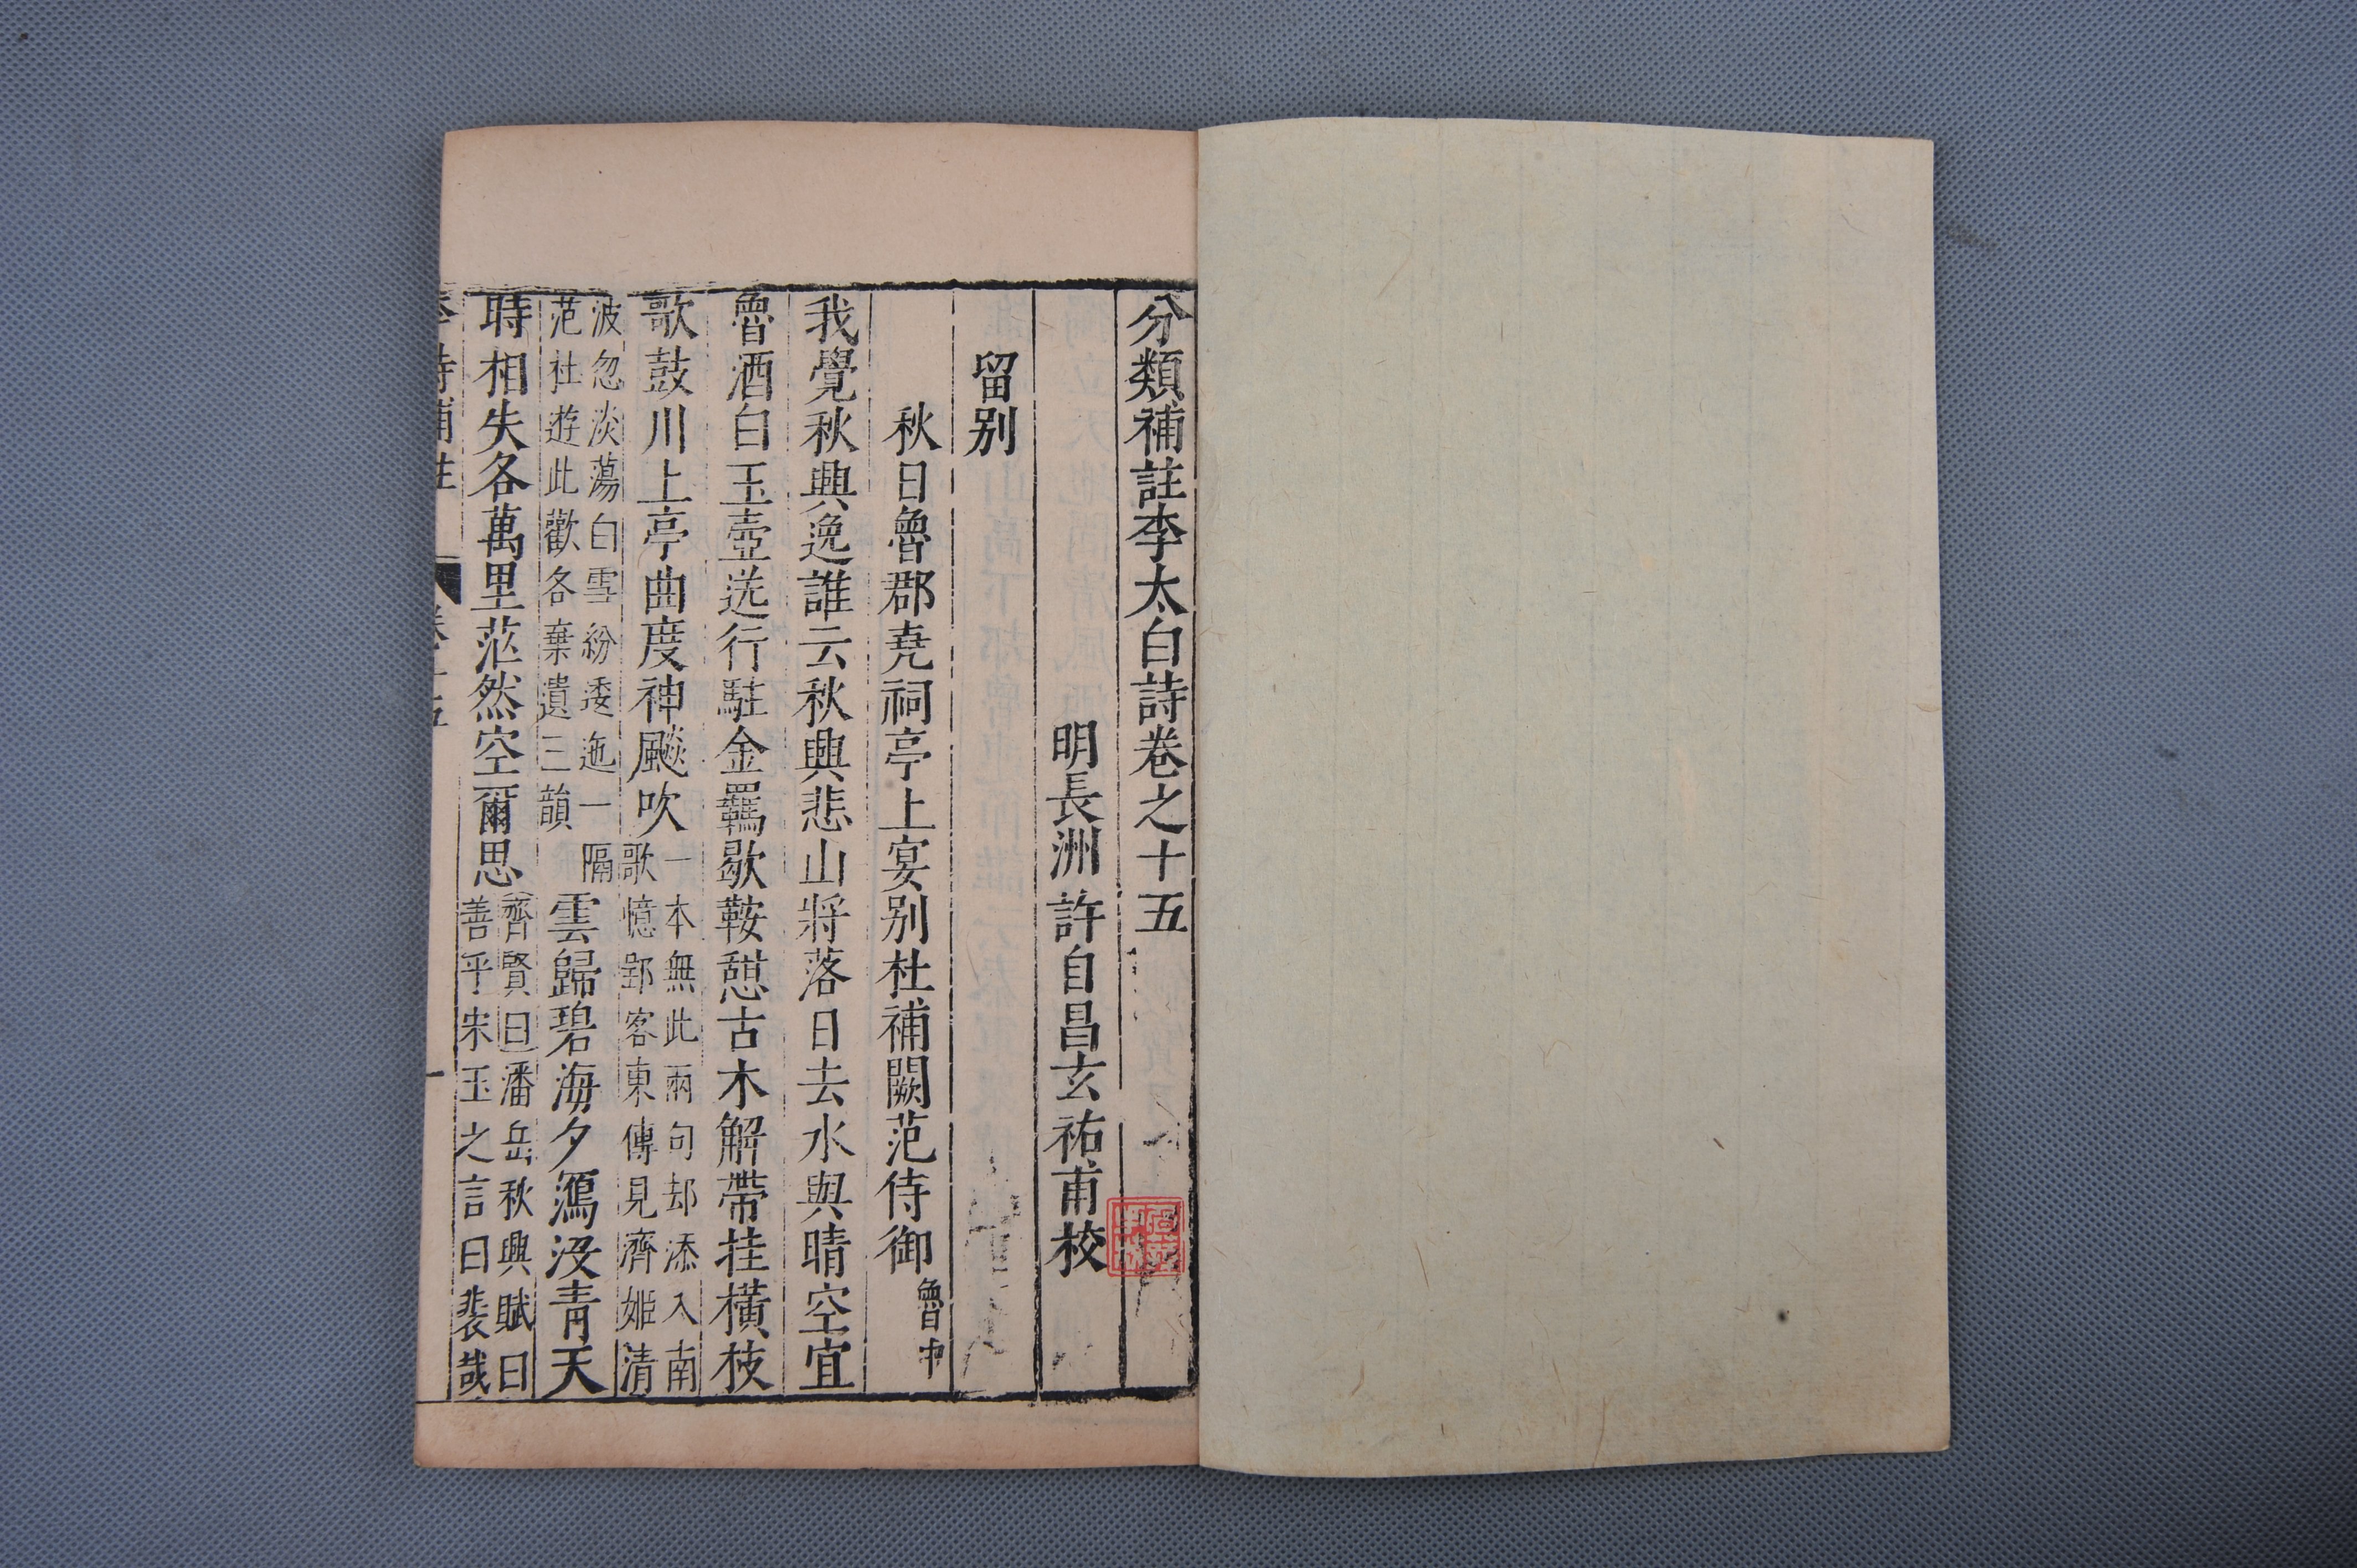 分類補註李太白詩卷之十五
明長洲許自昌玄祐甫校
留别
秋日魯郡堯祠亭上宴别杜補闕范侍御魯中
我覺秋興逸誰云秋興悲山將落日去水與晴空宜
魯酒白玉壺送行駐金羈歇鞍憇古木解帶挂橫枝
歌鼓川上亭曲度神飈吹
一本無此兩句却添入南
歌憶郢客東傳見齊姬清
波忽淡蕩白雪紛逶迤一隔
范杜遊此歡各棄遺三韻
雲歸碧海夕鴈没青天
時相失各萬里茫然空爾思
齊賢曰潘岳秋興賦曰
善乎宋玉之言曰悲哉